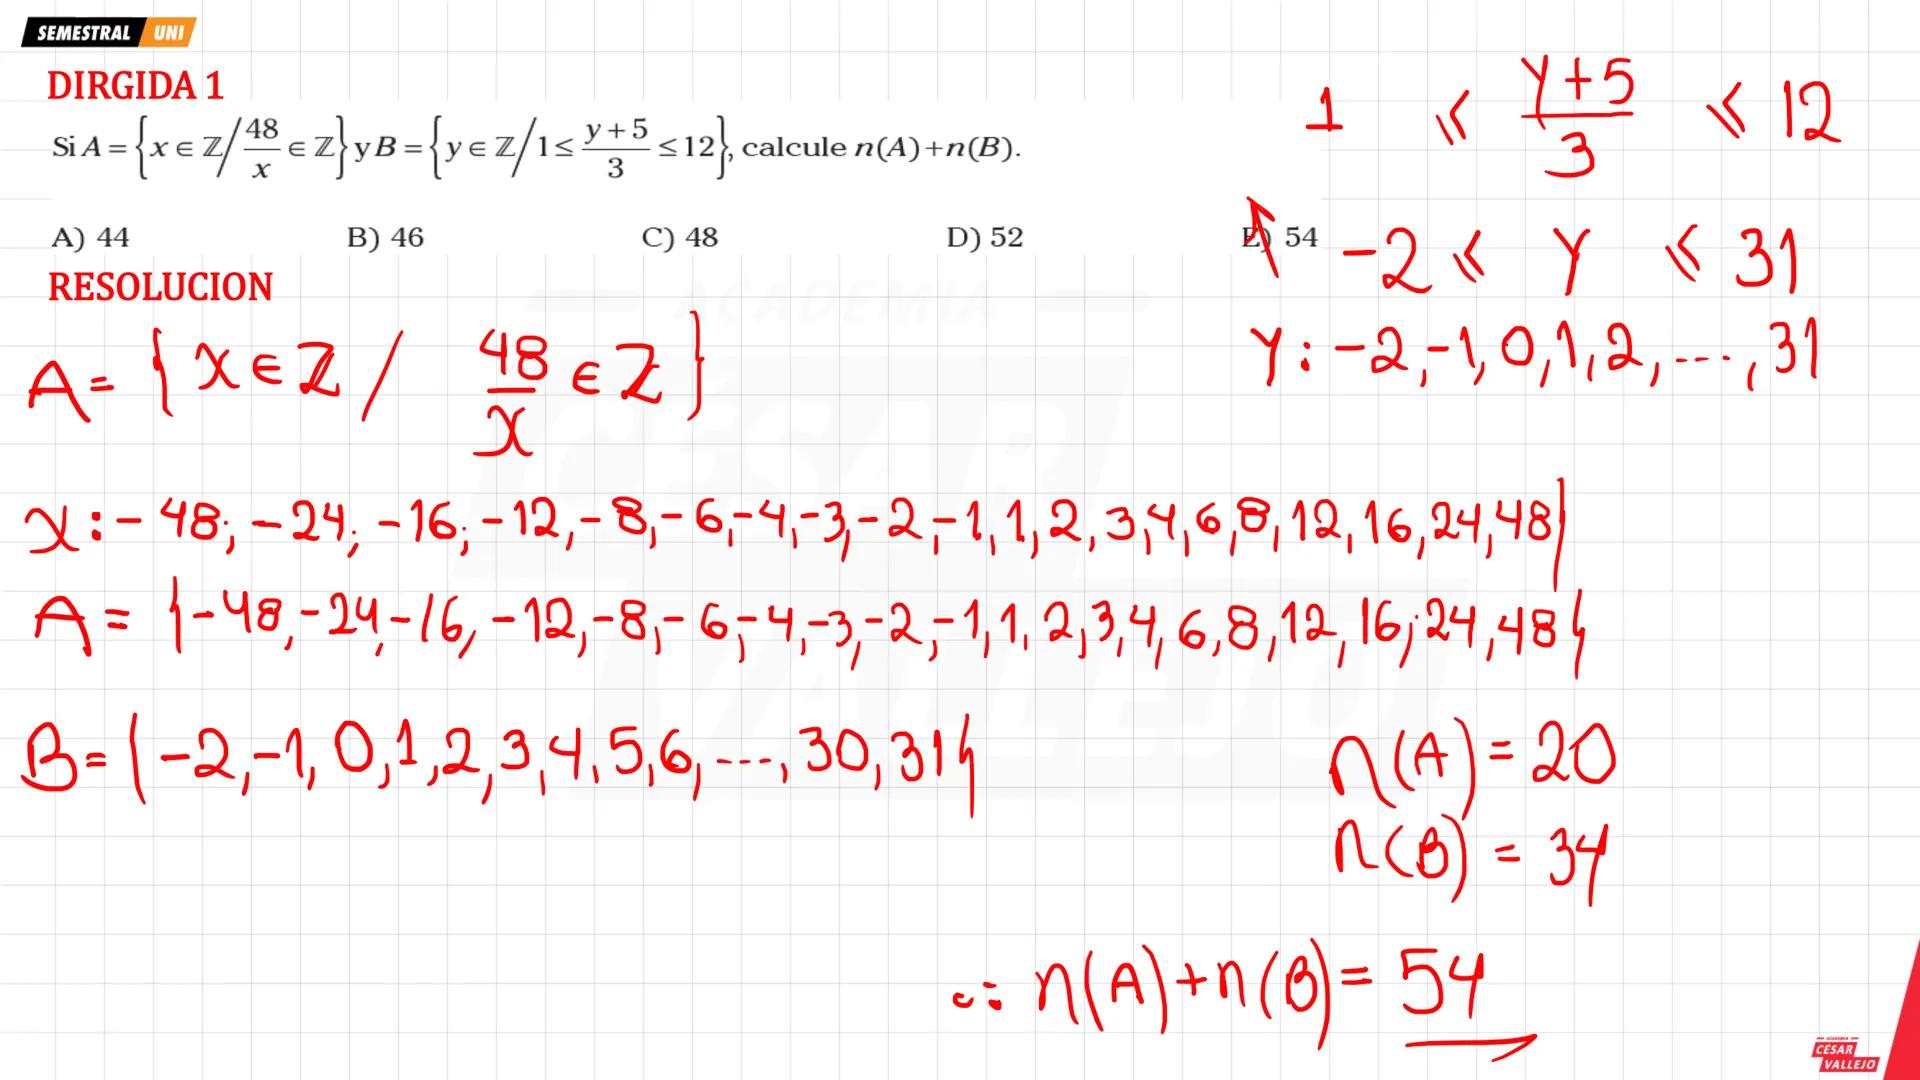 SEMESTRAL UNI
DIRGIDA 1
Si A = {x ∈ ℤ / 48/x ∈ ℤ} y B = {y ∈ ℤ / 1 ≤ (y+5)/3 ≤ 12}, calcule n(A)+n(B).
A) 44 B) 46 C) 48 D) 52 E) 54
RESOLUCION
1 ≤ (y+5)/3 ≤ 12
-2 ≤ y ≤ 31
y: -2, -1, 0, 1, 2, ..., 31
A = {x ∈ ℤ / 48/x ∈ ℤ}
x: -48; -24; -16; -12, -8, -6, -4, -3, -2, -1, 1, 2, 3, 4, 6, 8, 12, 16, 24, 48}
A = {-48, -24, -16, -12, -8, -6, -4, -3, -2, -1, 1, 2, 3, 4, 6, 8, 12, 16; 24, 48}
B = {-2, -1, 0, 1, 2, 3, 4, 5, 6, ..., 30, 31}
n(A) = 20
n(B) = 34
∴ n(A)+n(B) = 54
ACADEMIA
CÉSAR
VALLEJO
ACADEMIA
CÉSAR
VALLEJO